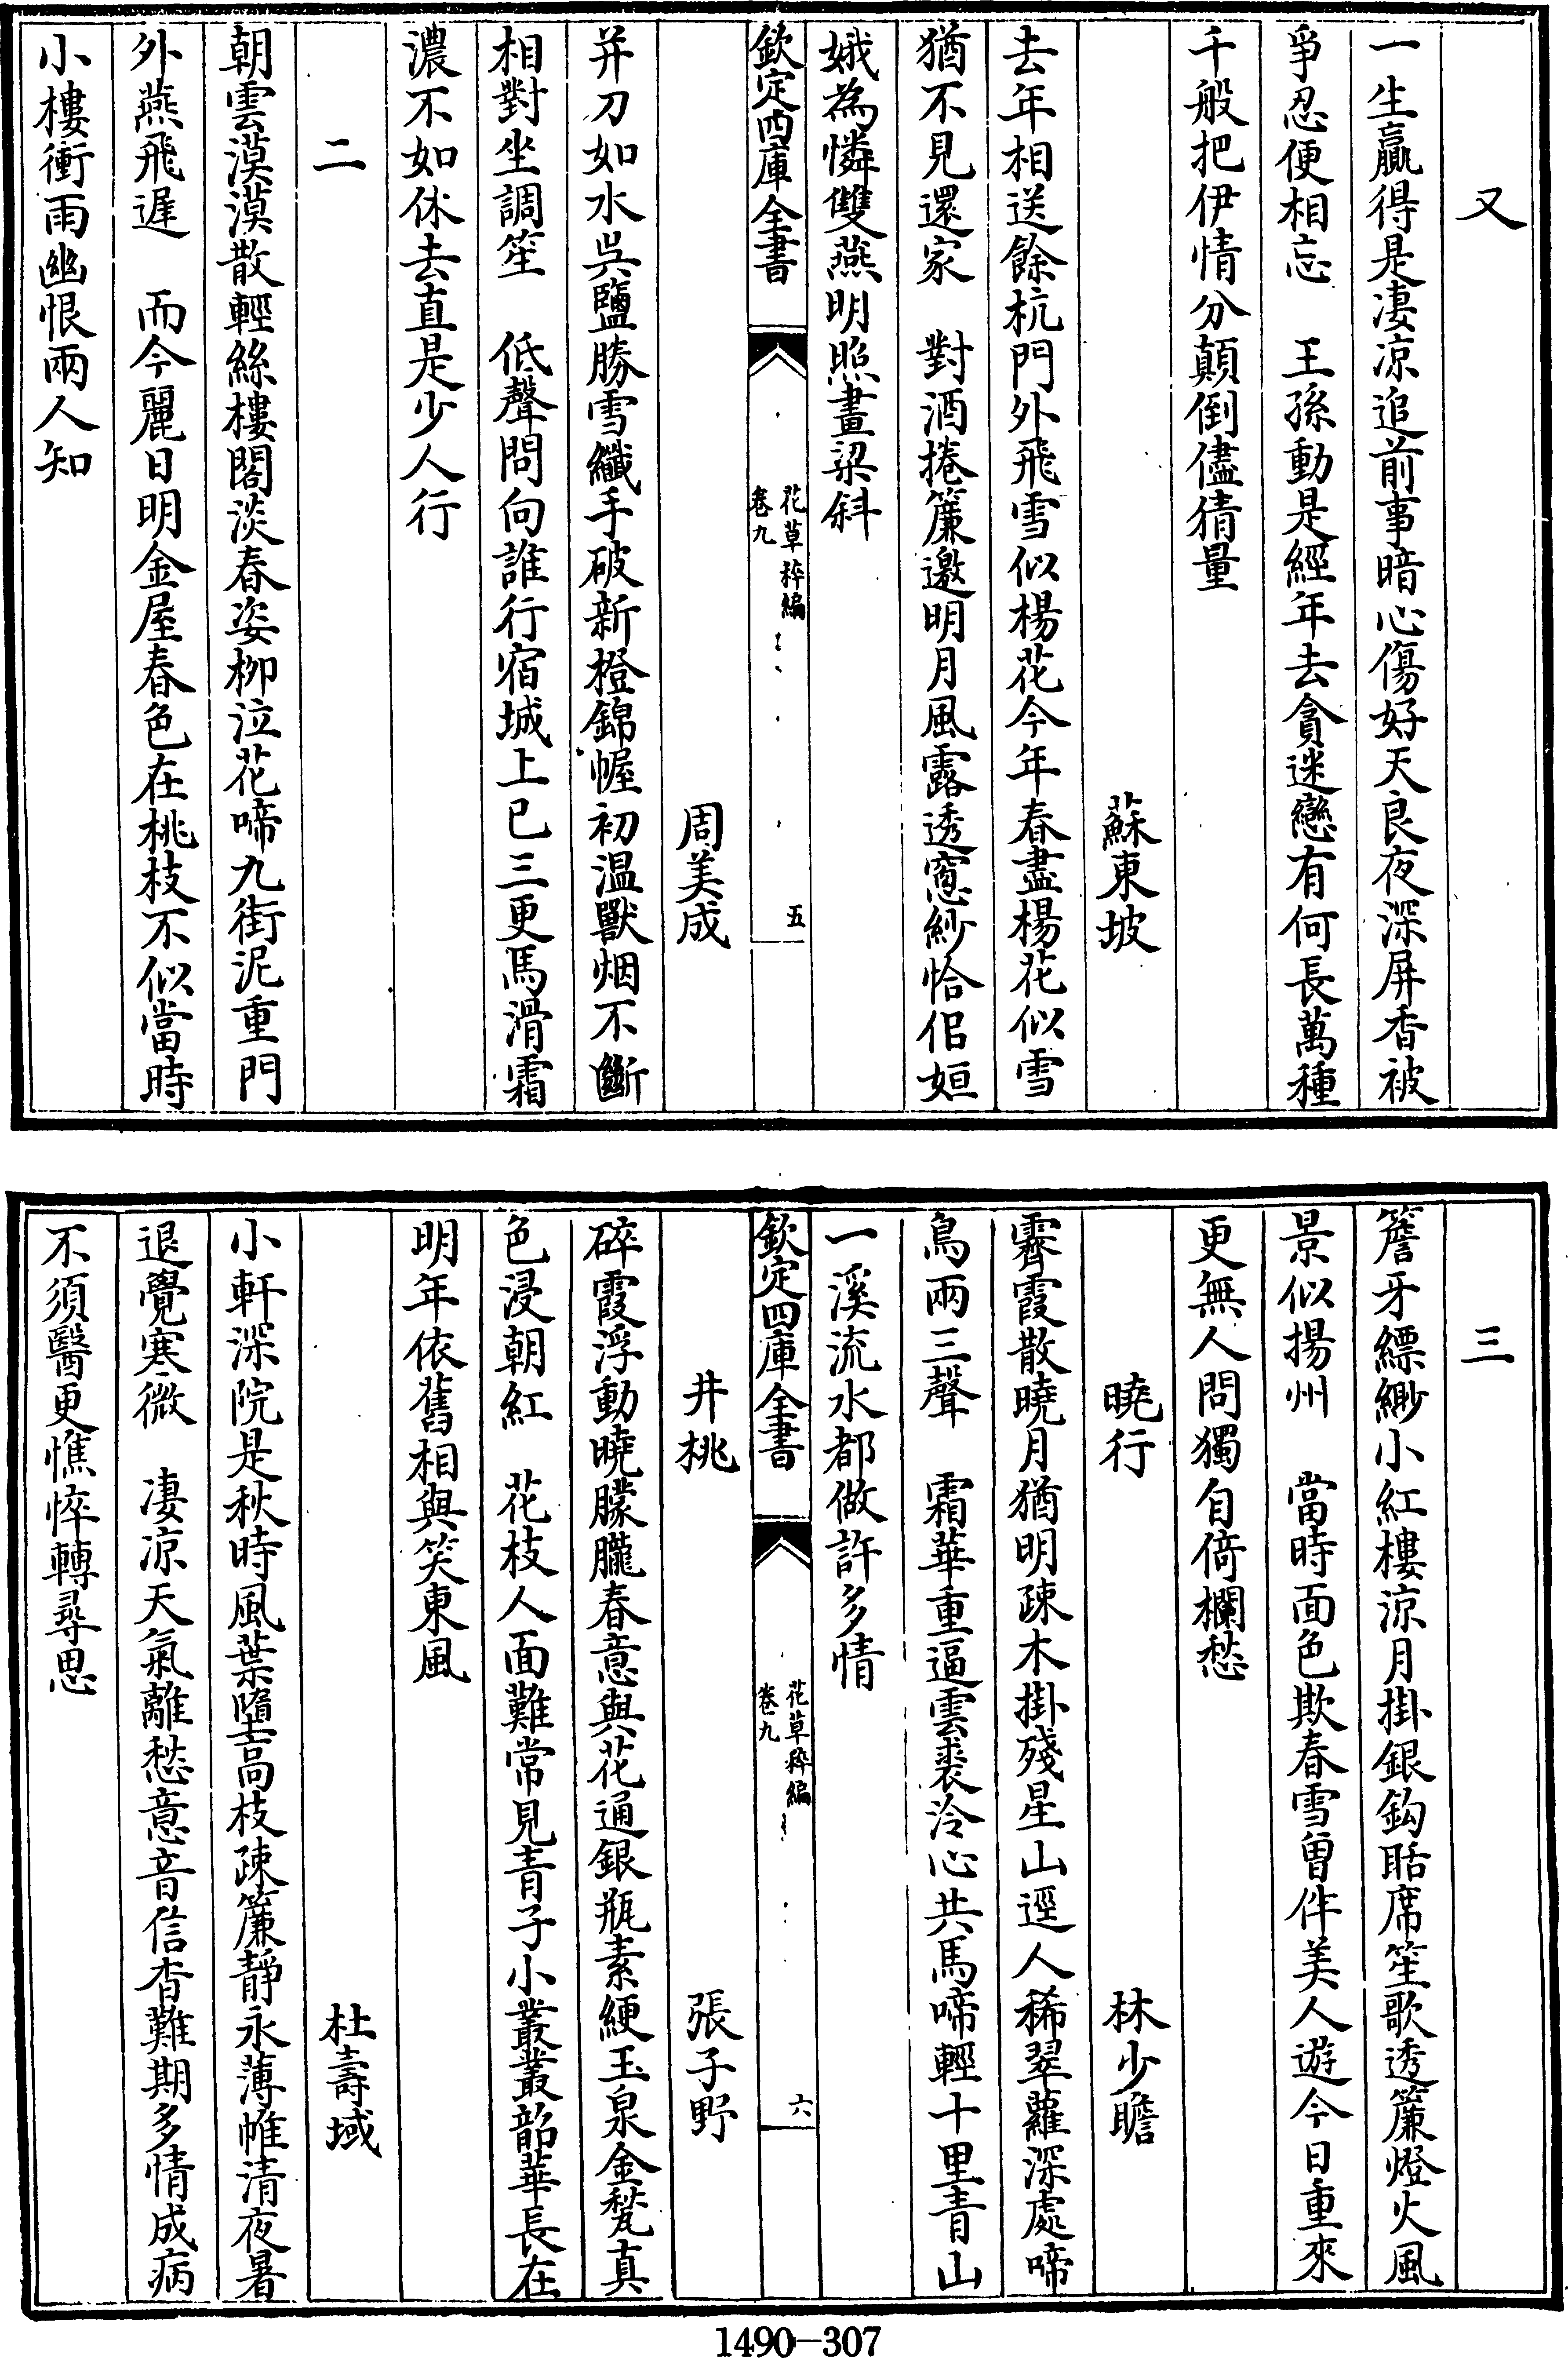 又
一生贏得是凄凉追前事暗心傷好天良夜深屏香被
爭忍便相忘　王孫動是經年去貪迷戀有何長萬種
千般把伊情分顛倒儘猜量
蘇東坡
去年相送餘杭門外飛雪似楊花今年春盡楊花似雪
猶不見還家　對酒捲簾邀明月風露透窻紗恰佀姮
娥為憐雙燕明照畫梁斜
欽定四庫全書
花草稡編
卷九
五
周美成
并刀如水吳鹽勝雪纖手破新橙錦幄初温獸烟不斷
相對坐調笙　低聲問向誰行宿城上已三更馬滑霜
濃不如休去直是少人行
二
朝雲漠漠散輕絲樓閣淡春姿柳泣花啼九街泥重門
外燕飛遲　而今麗日明金屋春色在桃枝不似當時
小樓衝雨幽恨兩人知
三
簷牙縹緲小紅樓涼月掛銀鈎聒席笙歌透簾燈火風
景似揚州　當時面色欺春雪曾伴美人遊今日重來
更無人問獨自倚欄愁
曉行　林少瞻
霽霞散曉月猶明疎木掛殘星山逕人稀翠蘿深處啼
鳥兩三聲　霜華重逼雲裘冷心共馬啼輕十里青山
一溪流水都做許多情
欽定四庫全書
花草稡編
卷九
六
井桃　張子野
碎霞浮動曉朦朧春意與花通銀瓶素綆玉泉金甃真
色浸朝紅　花枝人面難常見青子小叢叢韶華長在
明年依舊相與笑東風
杜壽域
小軒深院是秋時風葉墮高枝疎簾靜永薄帷清夜暑
退覺寒微　凄凉天氣離愁意音信杳難期多情成病
不須醫更憔悴轉尋思
1490-307